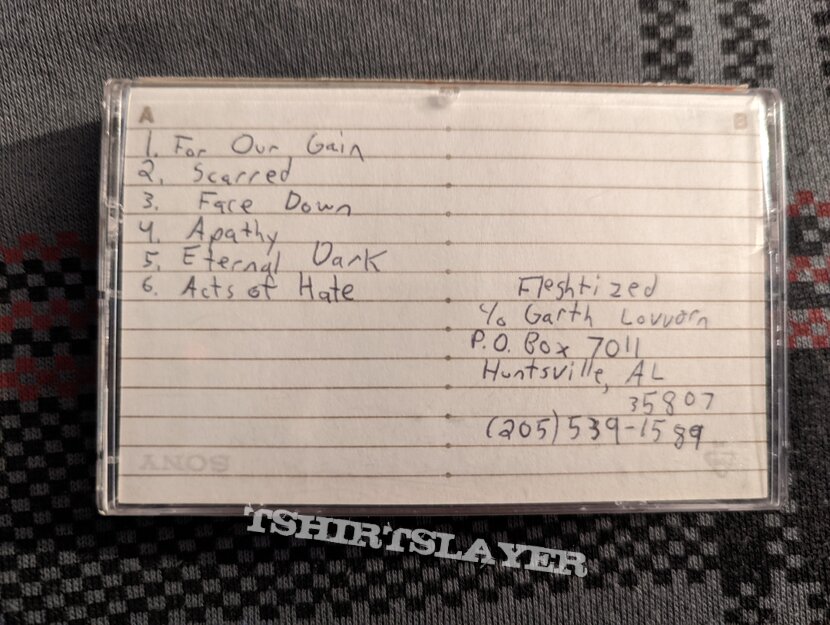 A
B
1. For Our Gain
2. Scarred
3. Face Down
4. Apathy
5. Eternal Dark
6. Acts of Hate
Fleshtized
c/o Garth Lovvorn
P.O. Box 7011
Huntsville, AL
35807
(205) 539-1589
SONY
TSHIRTSLAYER